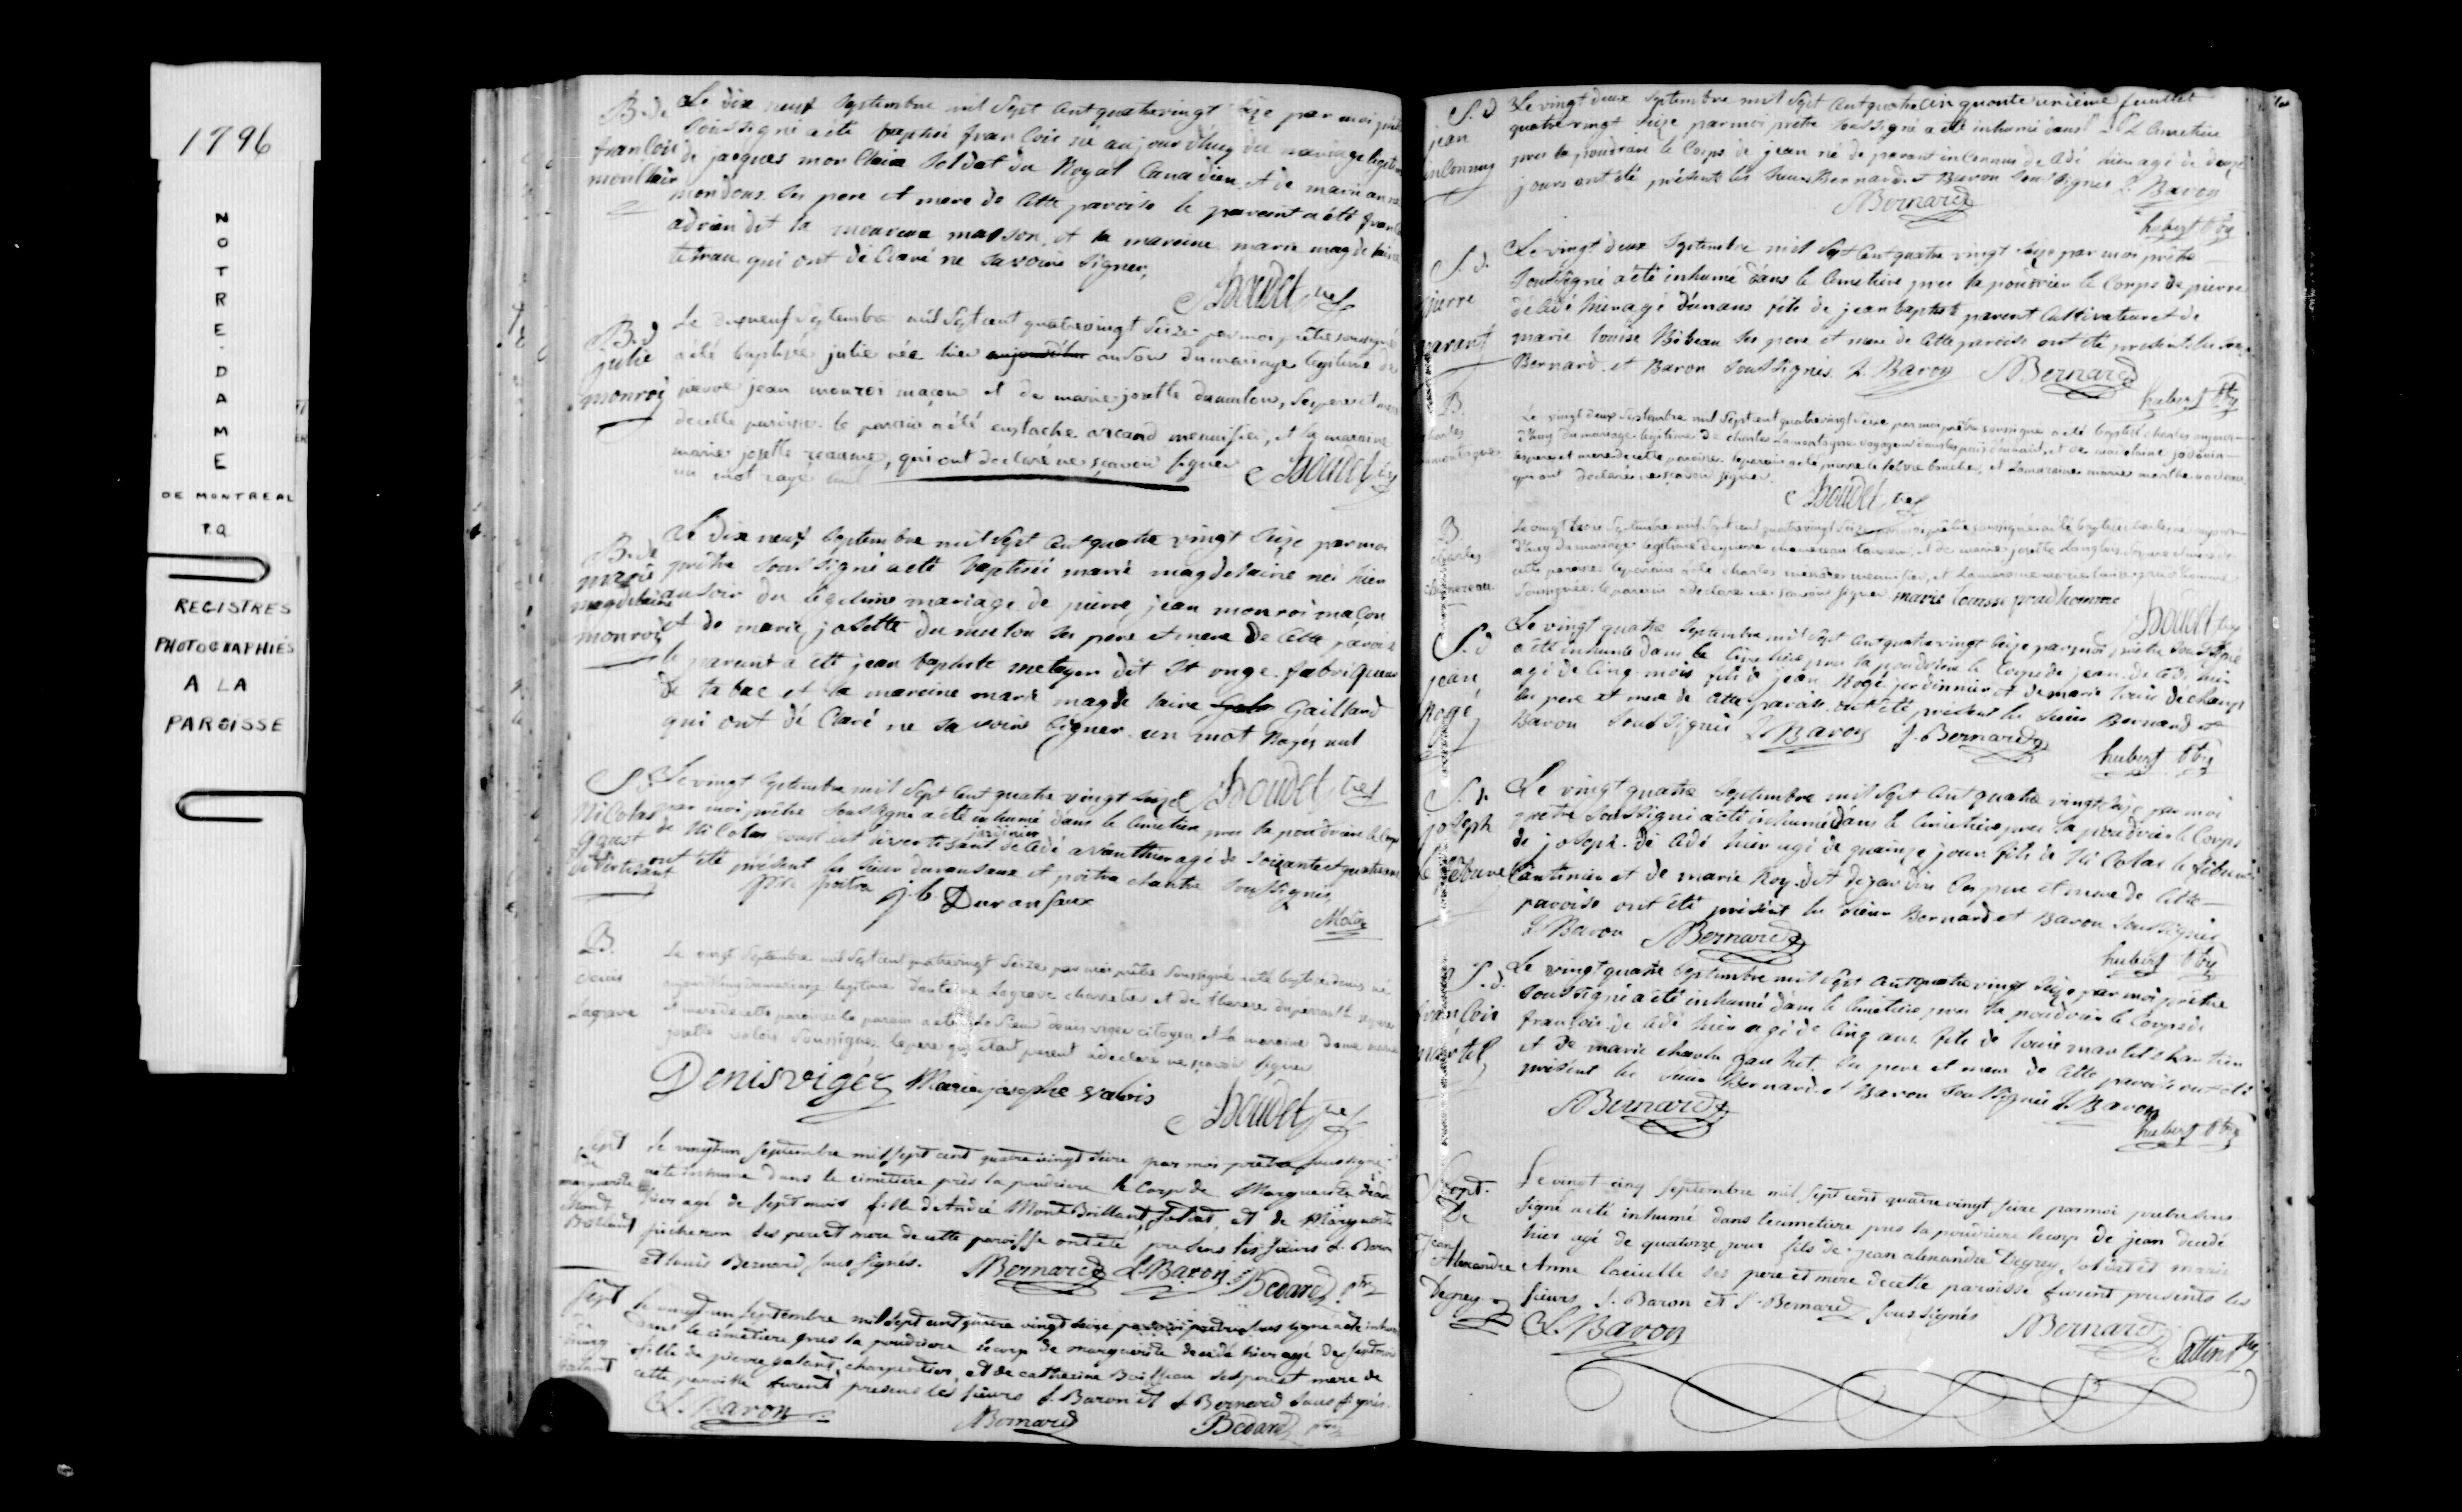 1796
NOTRE-DAME
DE MONTREAL
P.Q.
REGISTRES
PHOTOGRAPHIÉS
A LA
PAROISSE
B. de
francois
monClair
Le dix neuf Septembre mil Sept Cent quatrevingt Seize par moi prêtre
Soussigné a été baptisé francois né aujourd'huy du mariage legitime
de jacques monClair Soldat du Royal Canadien et de marie anne
mondous. Ses pere et mere de Cette paroise le parrain a été francois
adrien dit la masson, et la maraine marie magdelaine
tetrau qui ont déClaré ne Savoire Signer,
B. d
julie
monroi
Le dixneuf Septembre mil Sept cent quatrevingt Seize par moi prêtre soussigné
a été baptisée julie née hier aujourd'hui au soir du mariage legitime de
pierre jean monroi maçon et de marie josette dumulon, Ses pere et mere
de cette paroisse. le parain a été eustache arcand menuisier, et la maraine
marie josette reaume, qui ont declaré ne sçavoir signer
un mot rayé nul
B. de
marie
magdelaine
monroi
Le dix neuf Septembre mil Sept Cent quatre vingt Seize par moi
prêtre Soussigné a été baptisée marie magdelaine née hier
au soir du legitime mariage de pierre jean monroi maçon
et de marie josette dumulon Ses pere et mere de Cette paroise
le parrain a été jean baptiste metayer dit St onge fabriqueur
de tabac et la maraine marie magdelaine Gailland
qui ont déClaré ne Savoir Signer un mot Rayés nul
S. d
Nicolas
divertisant
Le vingt Septembre mil Sept Cent quatre vingt Seize
par moi prêtre Soussigné a été inhumé dans le Cimetiere pres la poudriere le Corps
de Nicolas dit divertisant jardinier décédé avanthier agé de Soixante et quatre ans
ont été présent les Sieur duransaux et poitra chantre Soussignés
poitra j.b. Duransaux
B.
Denis
Lagrave
Le vingt Septembre mil Sept cent quatrevingt Seize par moi prêtre Soussigné a été baptisé denis né
aujourd'huy du mariage legitime d'antoine Lagrave charretier et de
et mere de cette paroisse. le parain a été le Sieur denis viger citoyen, et la maraine dame marie
josette valois Soussignés. le pere qui étant present a declaré ne sçavoir signer
Denis viger Marie josephe valois
Sept
De
marguerite
Mont
Brillant
Le vingt un Septembre mil sept cent quatre vingt seize par moi prêtre soussigné
a été inhumé dans le cimetiere près la poudriere le Corps de Marguerite
hier agé de sept mois fille d'André Mont Brillant, soldat, et de Marguerite
picheron ses pere et mere de cette paroisse ont été présens les sieurs L. Baron
et louis Bernard soussignés. LBernard L. Baron Bedard ptre
Sept
de
marg
galant
Le vingt un Septembre mil sept cent quatre vingt seize par moi prêtre soussigné a été inhumé
dans le cimetiere pres la poudriere le corp de marguerite decedé hier agé de sept mois
fille de pierre galant, charpentier, et de catherine Boisseau ses pere et mere de
cette paroisse furent présens les sieurs L. Baron et L Bernard soussignés.
L. Baron LBernard Bedard ptre
S. d
jean
inConnus
Le vingt deux Septembre mil Sept Cent quatre Cinquante unieme feuillet
quatre vingt Seize par moi prêtre Soussigné a été inhumé dans le Cimetiere
pres la poudriere le Corps de jean né de parent inConnus deCédé hier agé de douze
jours ont été présent les Sieur Bernard et Baron Soussignés L. Baron
LBernard hubert Ptre
S. d.
pierre
parent
Le vingt deux Septembre mil Sept Cent quatre vingt Seize par moi prêtre
Soussigné a été inhumé dans le Cimetiere pres la poudriere le Corps de pierre
déCédé hier agé d'un ans fils de jean baptiste parent Cultivateur et de
marie louise Bibeau Ses pere et mere de Cette paroise ont été présents les Sieur
Bernard et Baron Soussignés. L. Baron LBernard
hubert Ptre
B.
charles
Lamontagne
Le vingt deux Septembre mil Sept cent quatrevingt Seize par moi prêtre soussigné a été baptisé charles né aujour-
d'huy du mariage legitime de charles Lamontagne voyageur dans les païs d'en haut, et de madelaine jodouin
Ses pere et mere de cette paroisse. le parain a été pierre le febvre boucher, et La maraine marie marthe nadeau
qui ont declaré ne sçavoir signer.
B.
charles
chenereau
Le vingt trois Septembre mil Sept cent quatrevingt Seize par moi prêtre soussigné a été baptisé charles né aujour-
d'huy du mariage legitime de pierre chenereau et de marie josette Langlois Ses pere et mere de
cette paroisse. le parain a été charles menuisier, et La maraine marie louise prud'homme
Soussignée. le parain a declaré ne sçavoir signer marie louisse prudhomme
S. d
jean
Rogé
Le vingt quatre Septembre mil Sept Cent quatre vingt Seize par moi prêtre Soussigné
a été inhumé dans le Cimetiere pres la poudriere le Corps de jean deCédé hier
agé de Cinq mois fils de jean Rogé jardinnier et de marie louise déchamp
Ses pere et mere de Cette paroise ont été présent les Sieur Bernard et
Baron Soussignés L. Baron L. Bernard
hubert Ptre
S. de
joseph
lefebvre
Le vingt quatre Septembre mil Sept Cent quatre vingt Seize par moi
prêtre Soussigné a été inhumé dans le Cimetiere pres la poudriere le Corps
de joseph déCédé hier agé de quinze jours fils de NiColas lefebvre
Cantinier et de marie Roy dit dejardin Ses pere et mere de Cette
paroise ont été présent les Sieur Bernard et Baron Soussignés
L. Baron LBernard
hubert Ptre
S. d.
francois
martel
Le vingt quatre Septembre mil Sept Cent quatre vingt Seize par moi prêtre
Soussigné a été inhumé dans le Cimetiere pres la poudriere le Corps de
françois deCédé hier agé de Cinq ans fils de louis martel
et de marie charles Ses pere et mere de Cette paroise ont été
présent les Sieur Bernard et Baron Soussignés L. Baron
LBernard hubert Ptre
Sept.
De
Jean
Alexandre
Degrey
Le vingt cinq Septembre mil sept cent quatre vingt seize par moi prêtre sous-
signé a été inhumé dans le cimetiere pres la poudriere le corp de jean decedé
hier agé de quatorze jour fils de jean alexandre Degrey, soldat et marie
Anne ses pere et mere de cette paroisse furent présents les
sieurs L. Baron et L. Bernard soussignés
L. Baron LBernard